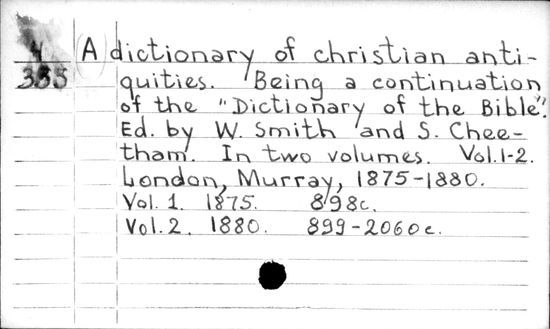 4 (A) dictionary of christian anti-
335 quities. Being a continuation
of the "Dictionary of the Bible".
Ed. by W. Smith and S. Chee-
tham. In two volumes. Vol. 1-2.
London, Murray, 1875-1880.
Vol. 1. 1875. 898c.
Vol. 2. 1880. 899-2060c.